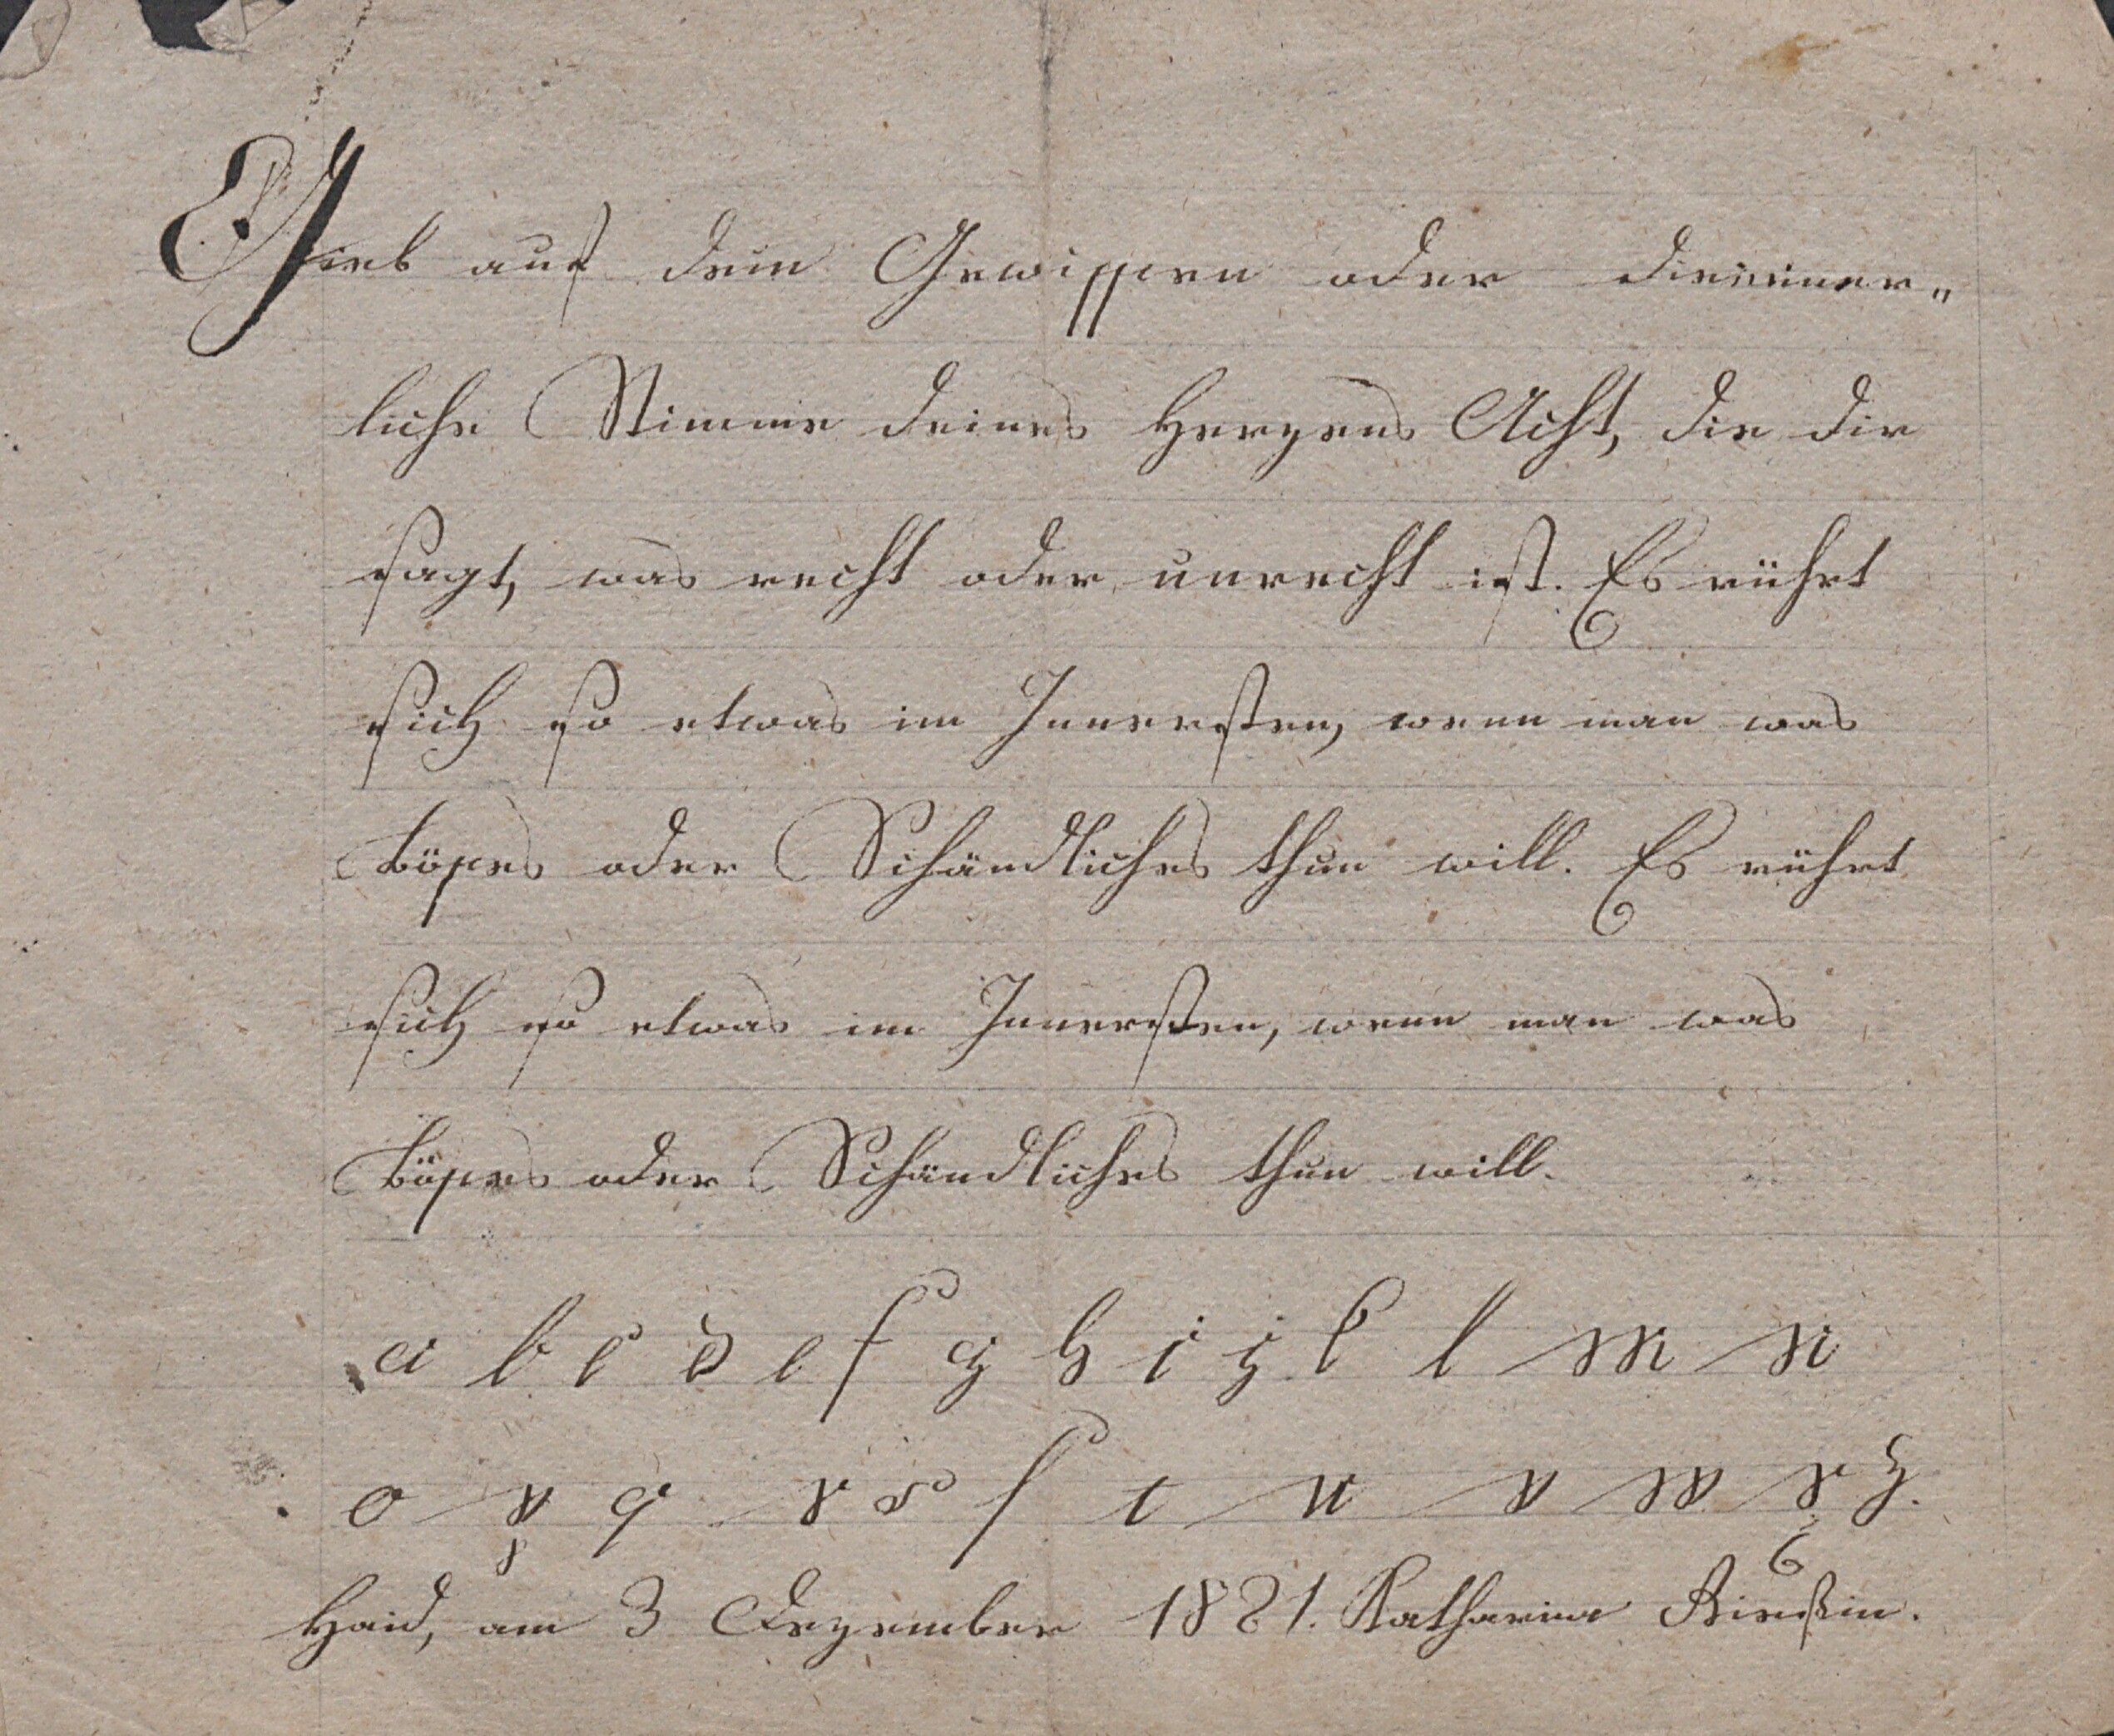 Gieb auf dein Gewissen oder die inner„
liche Stimme deines Herzens Acht, die dir
sagt, was recht oder unrecht ist. Es rührt
sich so etwas im Innersten, wenn man was
böses oder Schändliches thun will. Es rührt
sich so etwas im Innersten, wenn man was
böses oder Schändliches thun will.
a b c d e f g h i j k l m n
o p q r s ſ t u v w x z.
Haid, am 3 Dezember 1821. Katharina